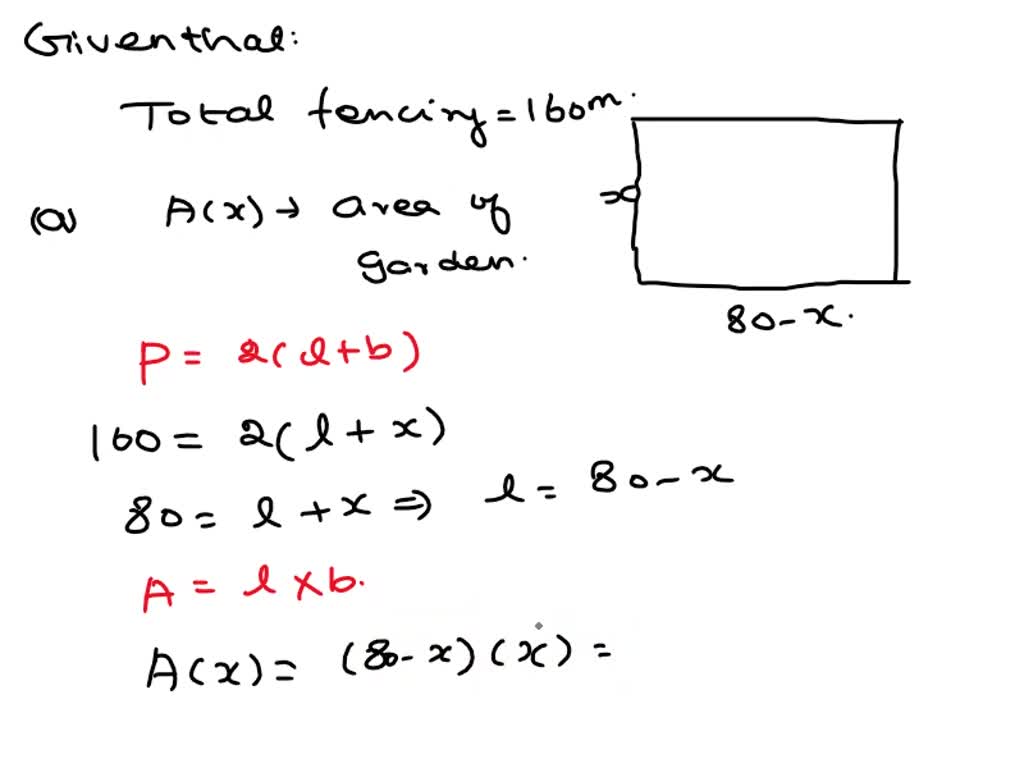 Given that:
Total fencing = 160m.
(a) A(x) → area of
garden.
x
80-x.
P = 2(l+b)
160 = 2(l+x)
80 = l+x ⇒ l = 80-x
A = l×b.
A(x) = (80-x)(x) =